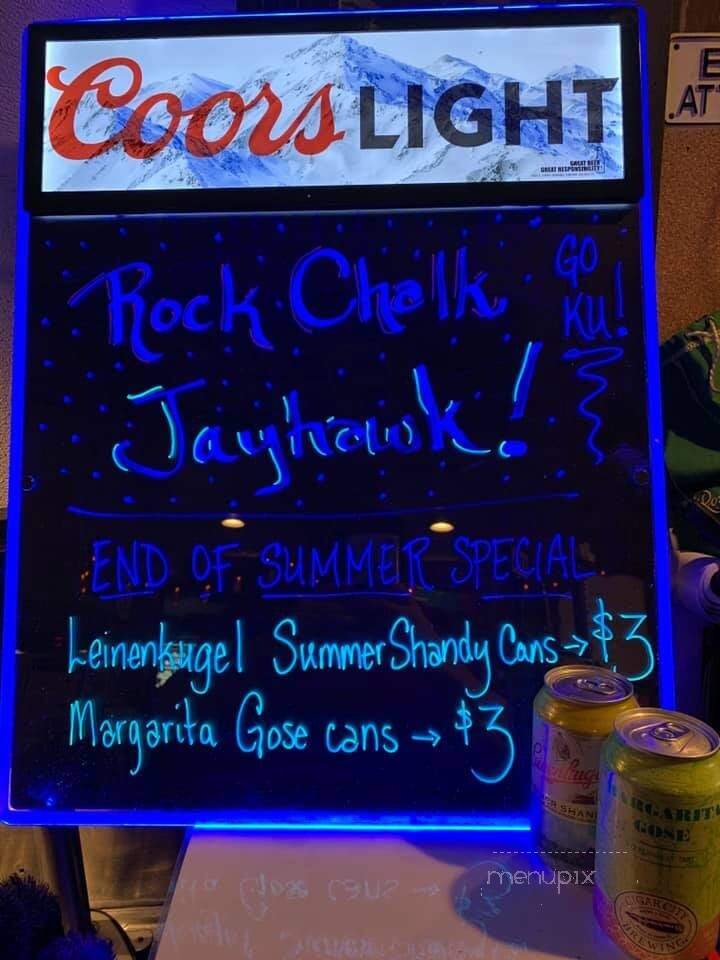 Coors LIGHT
GREAT BEER
GREAT RESPONSIBILITY
Rock Chalk
Jayhawk!
GO
KU!
END OF SUMMER SPECIAL
Leinenkugel Summer Shandy Cans → $3
Margarita Gose cans → $3
MARGARITA
GOSE
CIGAR CITY
BREWING
menupix